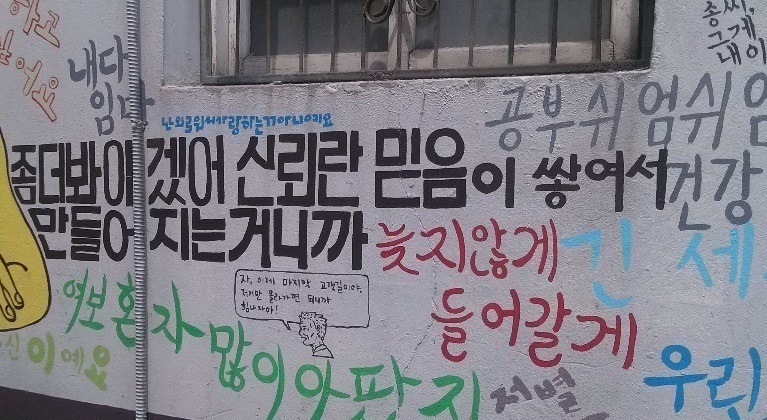 종씨,
그게
내이
하고
싶어요
내다
임다
난 외로워서 사랑하는 거 아니에요
공부쉬엄쉬엄
좀더봐야겠어 신뢰란 믿음이 쌓여서
만들어지는거니까
건강
늦지않게
들어갈게
긴 세
자, 이제 마지막 고갯길이야.
저기만 올라가면 되니까
힘내자아!
여보 혼자 많이 아팠지
신이예요
저별
우리